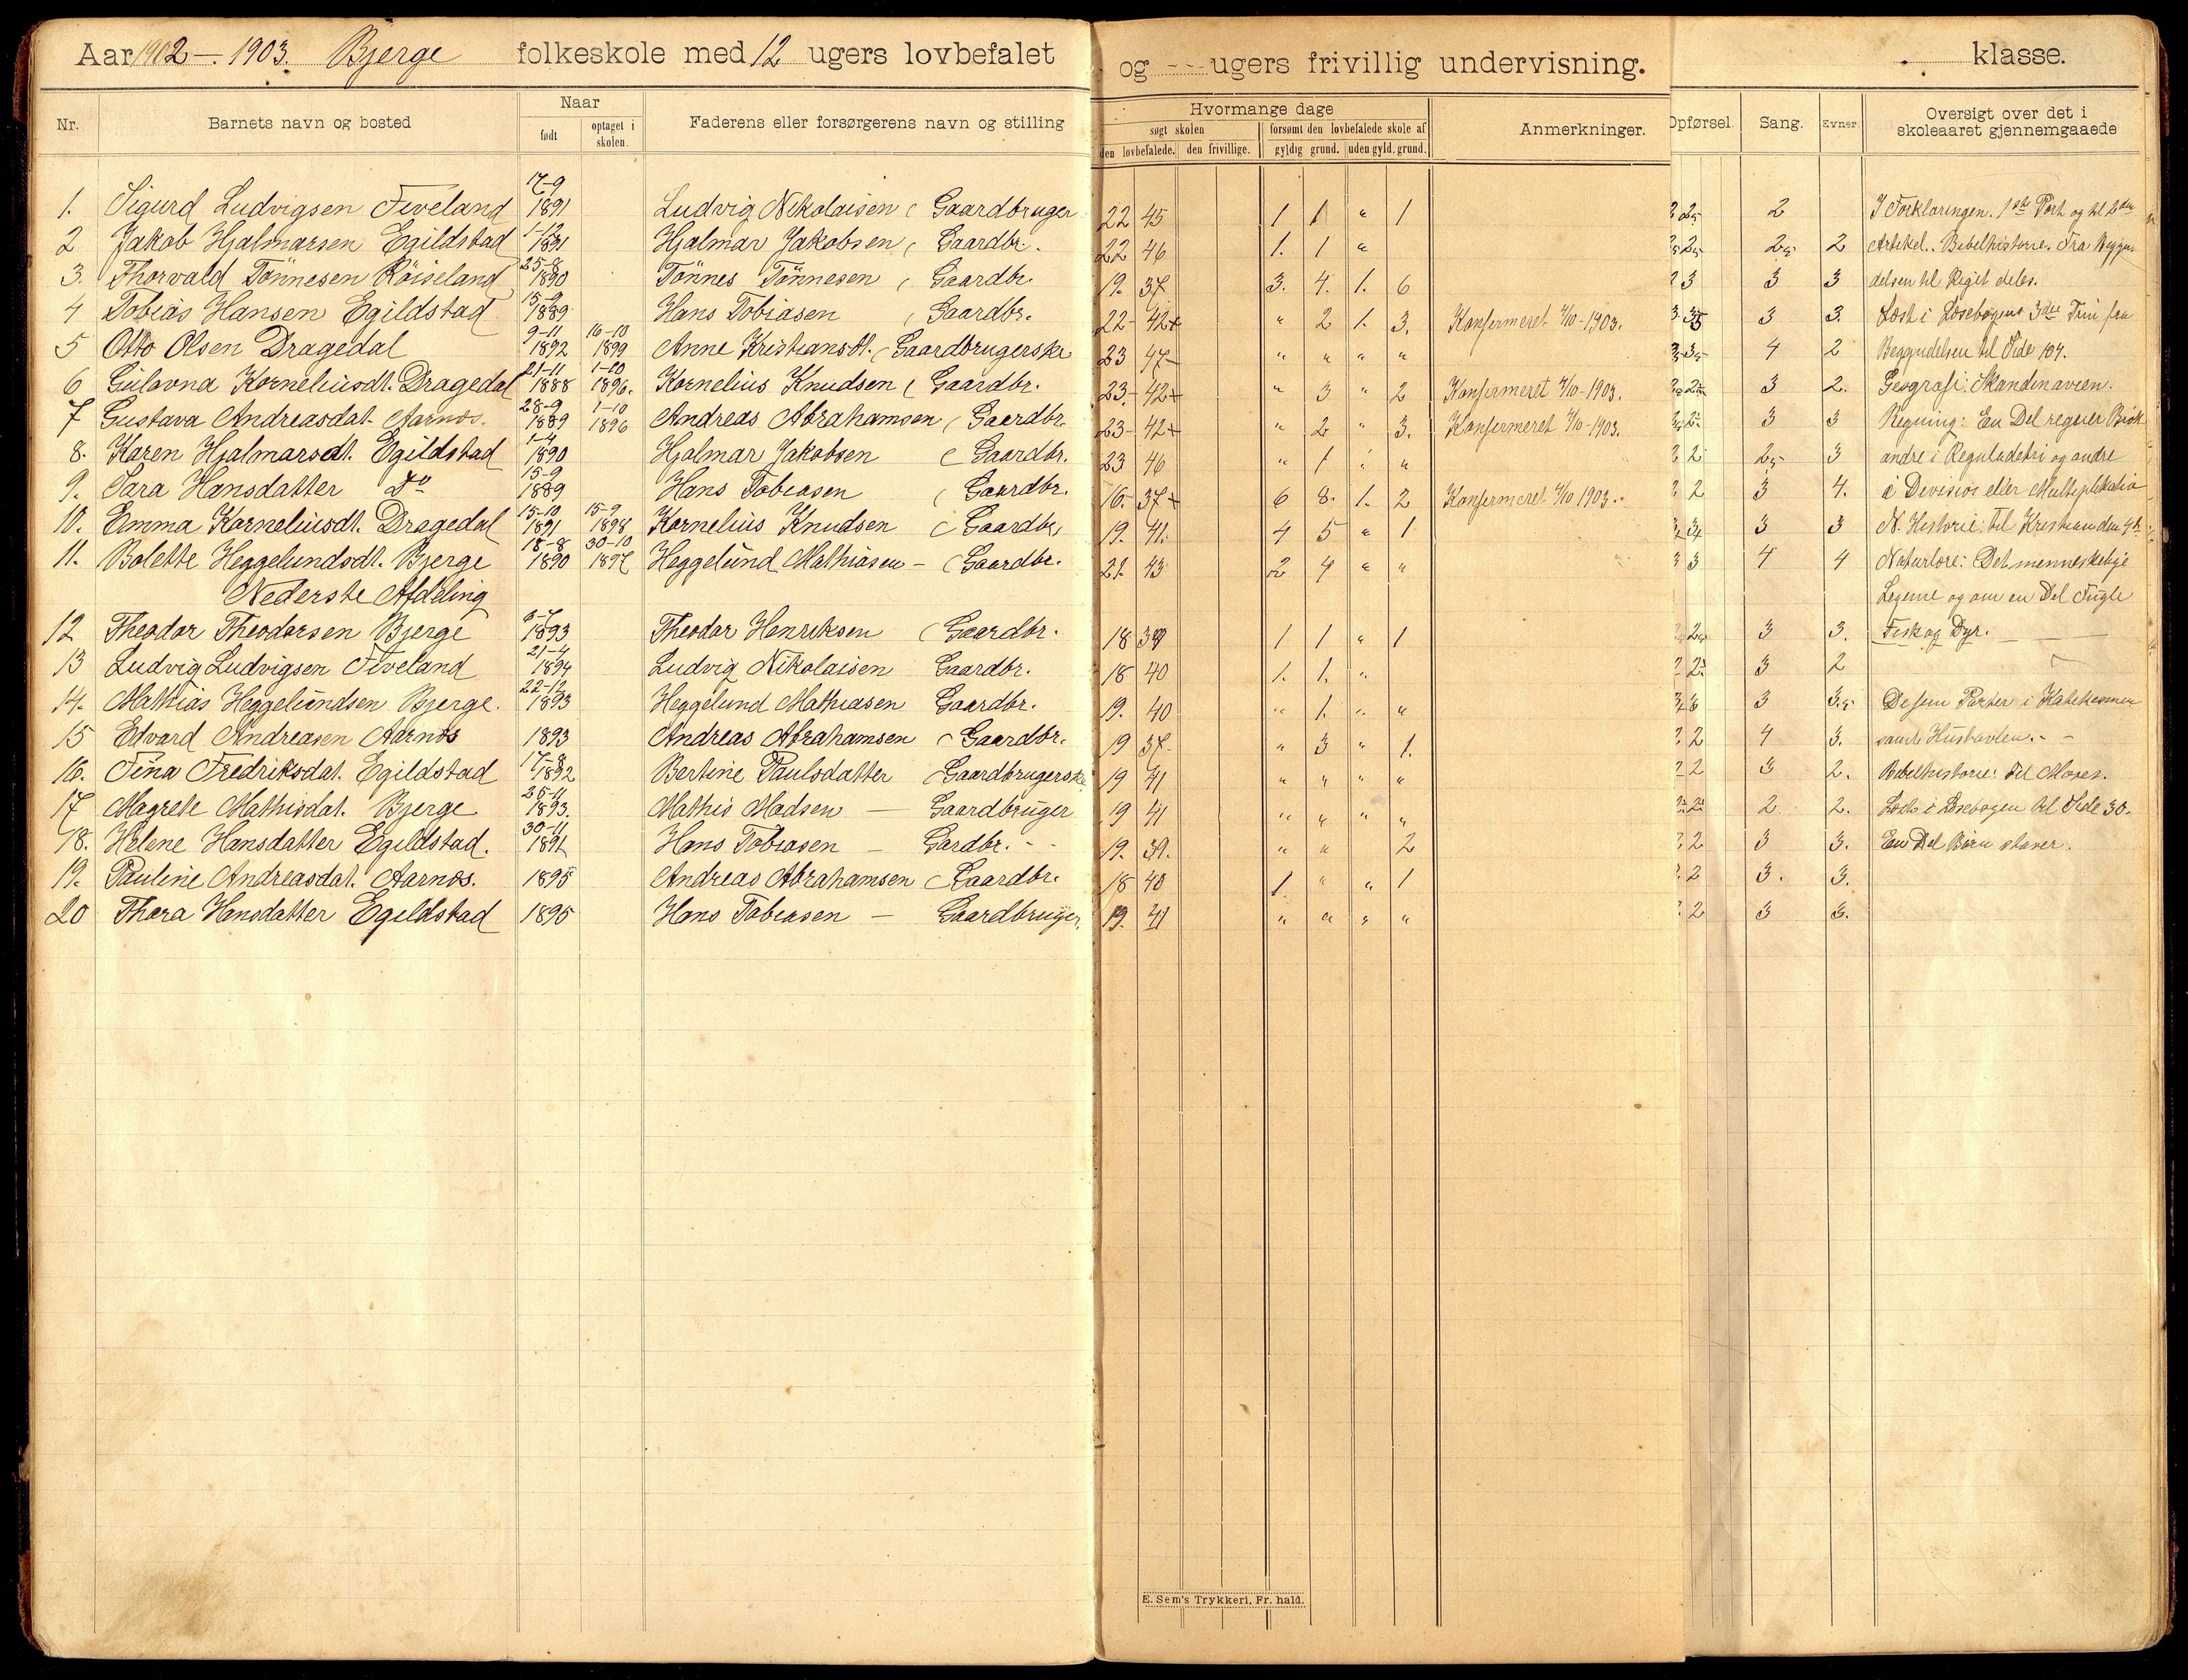 Aar 1902 – 1903. Bjerge folkeskole med 12 ugers lovbefalet og - - ugers frivillig undervisning. klasse.
Nr. Barnets navn og bosted Naar født optaget i skolen. Faderens eller forsørgerens navn og stilling
Hvormange dage søgt skolen den lovbefalede. den frivillige. forsømt den lovbefalede skole af gyldig grund. uden gyld. grund. Anmerkninger.
Opførsel. Sang. Evner Oversigt over det i skoleaaret gjennemgaaede
1. Sigurd Ludvigsen Tiveland 17-9 1891 Ludvig Nikolaisen Gaardbruger 22 45 1 1 " 1 2 I Forklaringen. 1ste Part og til 2den
2 Jakob Hjalmarsen Egildstad 1-12 1891 Hjalmar Jakobsen Gaardbr. 22 46 1. 1 " 2 Artikel. Bibelhistorie. Fra Beggyn
3. Thorvald Tönnesen Röiseland 25-8 1890 Tönnes Tönnesen Gaardbr. 19. 37 3. 4. 1. 6 3 3 3 delsen til Riget deles.
4 Tobias Hansen Egildstad 15-9 1889 Hans Tobiasen Gaardbr. 22- 42+ " 2 1. 3. Konfermeret 4/10-1903. 3 3. Læst i Læsebogens 3die Trin fra
5 Otto Olsen Dragedal 9-11 1892 16-10 1899 Anne Kristiansdt. Gaardbrugerske 23 47 " " " " 4 2 Beggndelsen til Side 104.
6 Gulovna Korneliusdt. Dragedal 21-11 1888 1-10 1896. Kornelius Knudsen Gaardbr. 23- 42+ " 3 " 2 Konfermeret 4/10-1903. 3 2. Geografi: Skandinavien.
7 Gustava Andreasdat. Aarnæs. 28-9 1889 1-10 1896 Andreas Abrahamsen Gaardbr. 23- 42+ " 2 " 3. Konfermeret 4/10-1903. 3 3 Regning: En Del regner Brøk
8. Karen Hjalmarsdt. Egildstad 1-4 1890 Hjalmar Jakobsen Gaardbr. 23 46 " 1 " " 2 3 andre i Reguladetri og andre
9. Sara Hansdatter Do 15-9 1889 Hans Tobiasen Gaardbr. 16. 37+ 6 8. 1. 2 Konfermeret 4/10 1903. 2 3 4. i Division eller Multiplikatio
10. Emma Korneliusdt. Dragedal 15-10 1891 15-9 1898 Kornelius Knudsen Gaardbr. 19. 41. 4 5 " 1 3 3 N. Historie: til Kristian den 4de
11. Bolette Heggelundsdt. Bjerge 18-8 1890 30-10 1897 Heggelund Mathiasen - Gaardbr. 21. 43 2 4 " " 3 4 4 Naturlære: Det menneskelige
Nederste Afdeling Legeme og om en Del Fugle
12 Theodor Theodorsen Bjerge 1893 Theodor Henriksen Gaardbr. 18 39 1 1 " 1 3 3. Fisk og Dyr.
13 Ludvig Ludvigsen Tiveland 21-4 1894 Ludvig Nikolaisen Gaardbr. 18 40 1. 1. " 3 2
14. Mathias Heggelundsen Bjerge. 22-12 1893 Heggelund Mathiasen Gaardbr. 19. 40 " 1. " " 3 De fem Parter i Katekismen
15 Edvard Andreasen Aarnæs 1893 Andreas Abrahamsen Gaardbr. 19 37. " 3 " 1. 2 4 3. samt Hustavlen. -
16. Tina Fredriksdat. Egildstad 17-8 1892 Bertine Paulsdatter Gaardbrugerske 19 41 " " " " 2 3 2. Bibelhistorie: Til Moses.
17 Magrete Mathisdat. Bjerge 25-11 1893. Mathis Madsen – Gaardbruger 19 41 " " " " 2 2. Læst i Læsebogen til Side 30.
18. Helene Hansdatter Egildstad. 30-11 1891 Hans Tobiasen – Gardbr. - - 19. 39. " " 2 2 3 3. En Del Børn staver.
19. Pauline Andreasdat. Aarnæs. 1895 Andreas Abrahamsen Gaardbr. 18 40 1 " " 1 2 3. 3.
20 Thora Hansdatter Egildstad 1895 Hans Tobiasen – Gaardbruger, 19. 41 " " " " 2 3 3.
E. Sem's Trykkeri, Fr. hald.